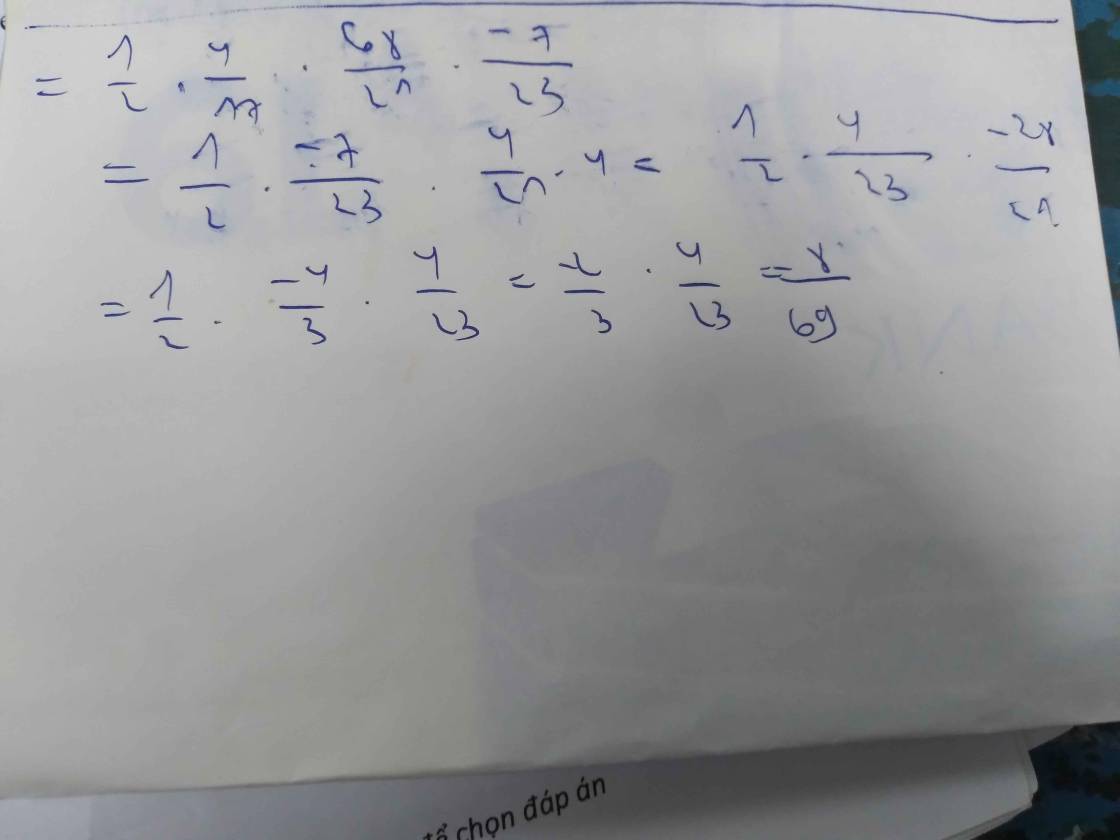 = 1/2 . 4/17 . 68/21 . -7/23
= 1/2 . -7/23 . 4/21 . 4 = 1/2 . 4/23 . -28/21
= 1/2 . -4/3 . 4/23 = -2/3 . 4/23 = -8/69
để chọn đáp án